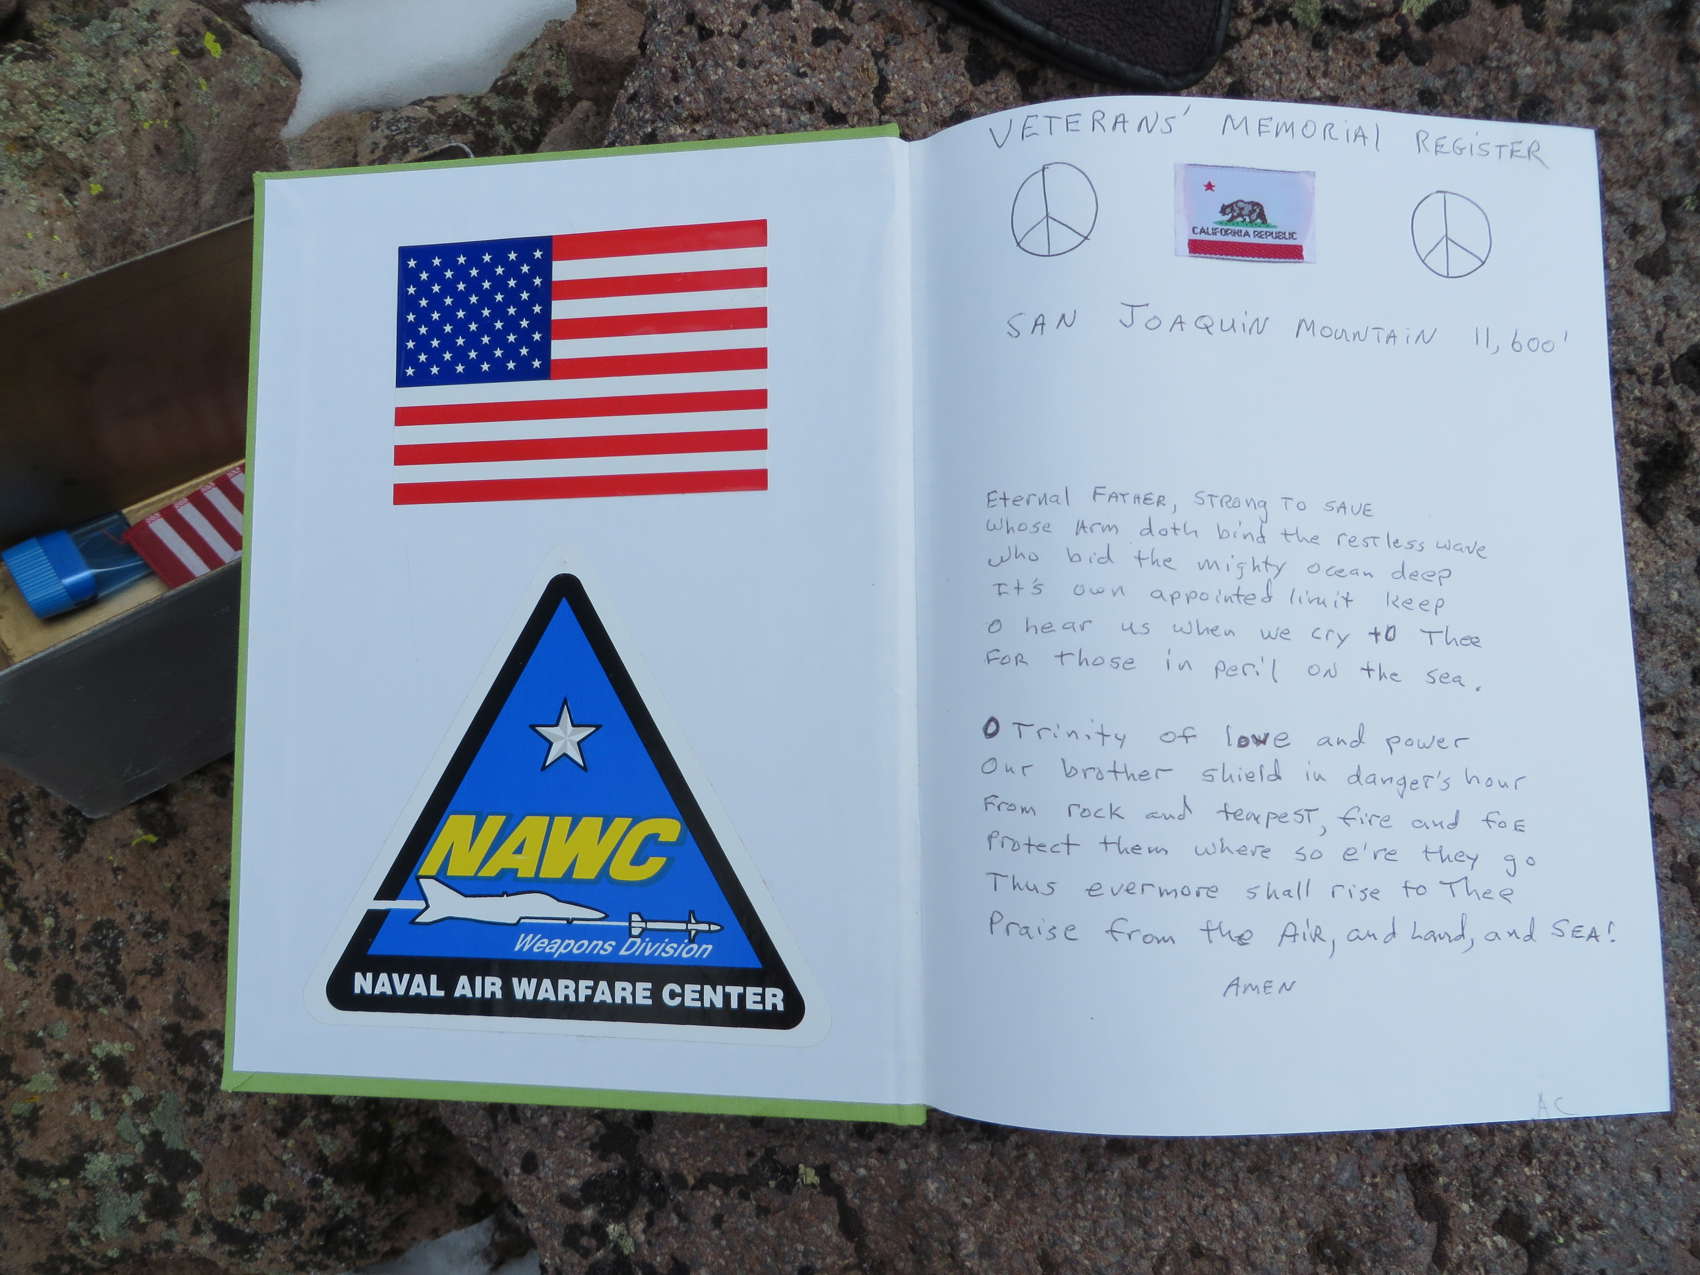 NAWC
Weapons Division
NAVAL AIR WARFARE CENTER
VETERANS' MEMORIAL REGISTER
CALIFORNIA REPUBLIC
SAN JOAQUIN MOUNTAIN 11,600'
Eternal FATHER, STRONG TO SAVE
Whose Arm doth bind the restless wave
Who bid the mighty ocean deep
It's own appointed limit keep
O hear us when we cry to Thee
FOR those in peril ON the sea.
O Trinity of love and power
Our brother shield in danger's hour
From rock and tempest, fire and foe
Protect them where so e're they go
Thus evermore shall rise to Thee
Praise from the AIR, and Land, and SEA!
AMEN
AC